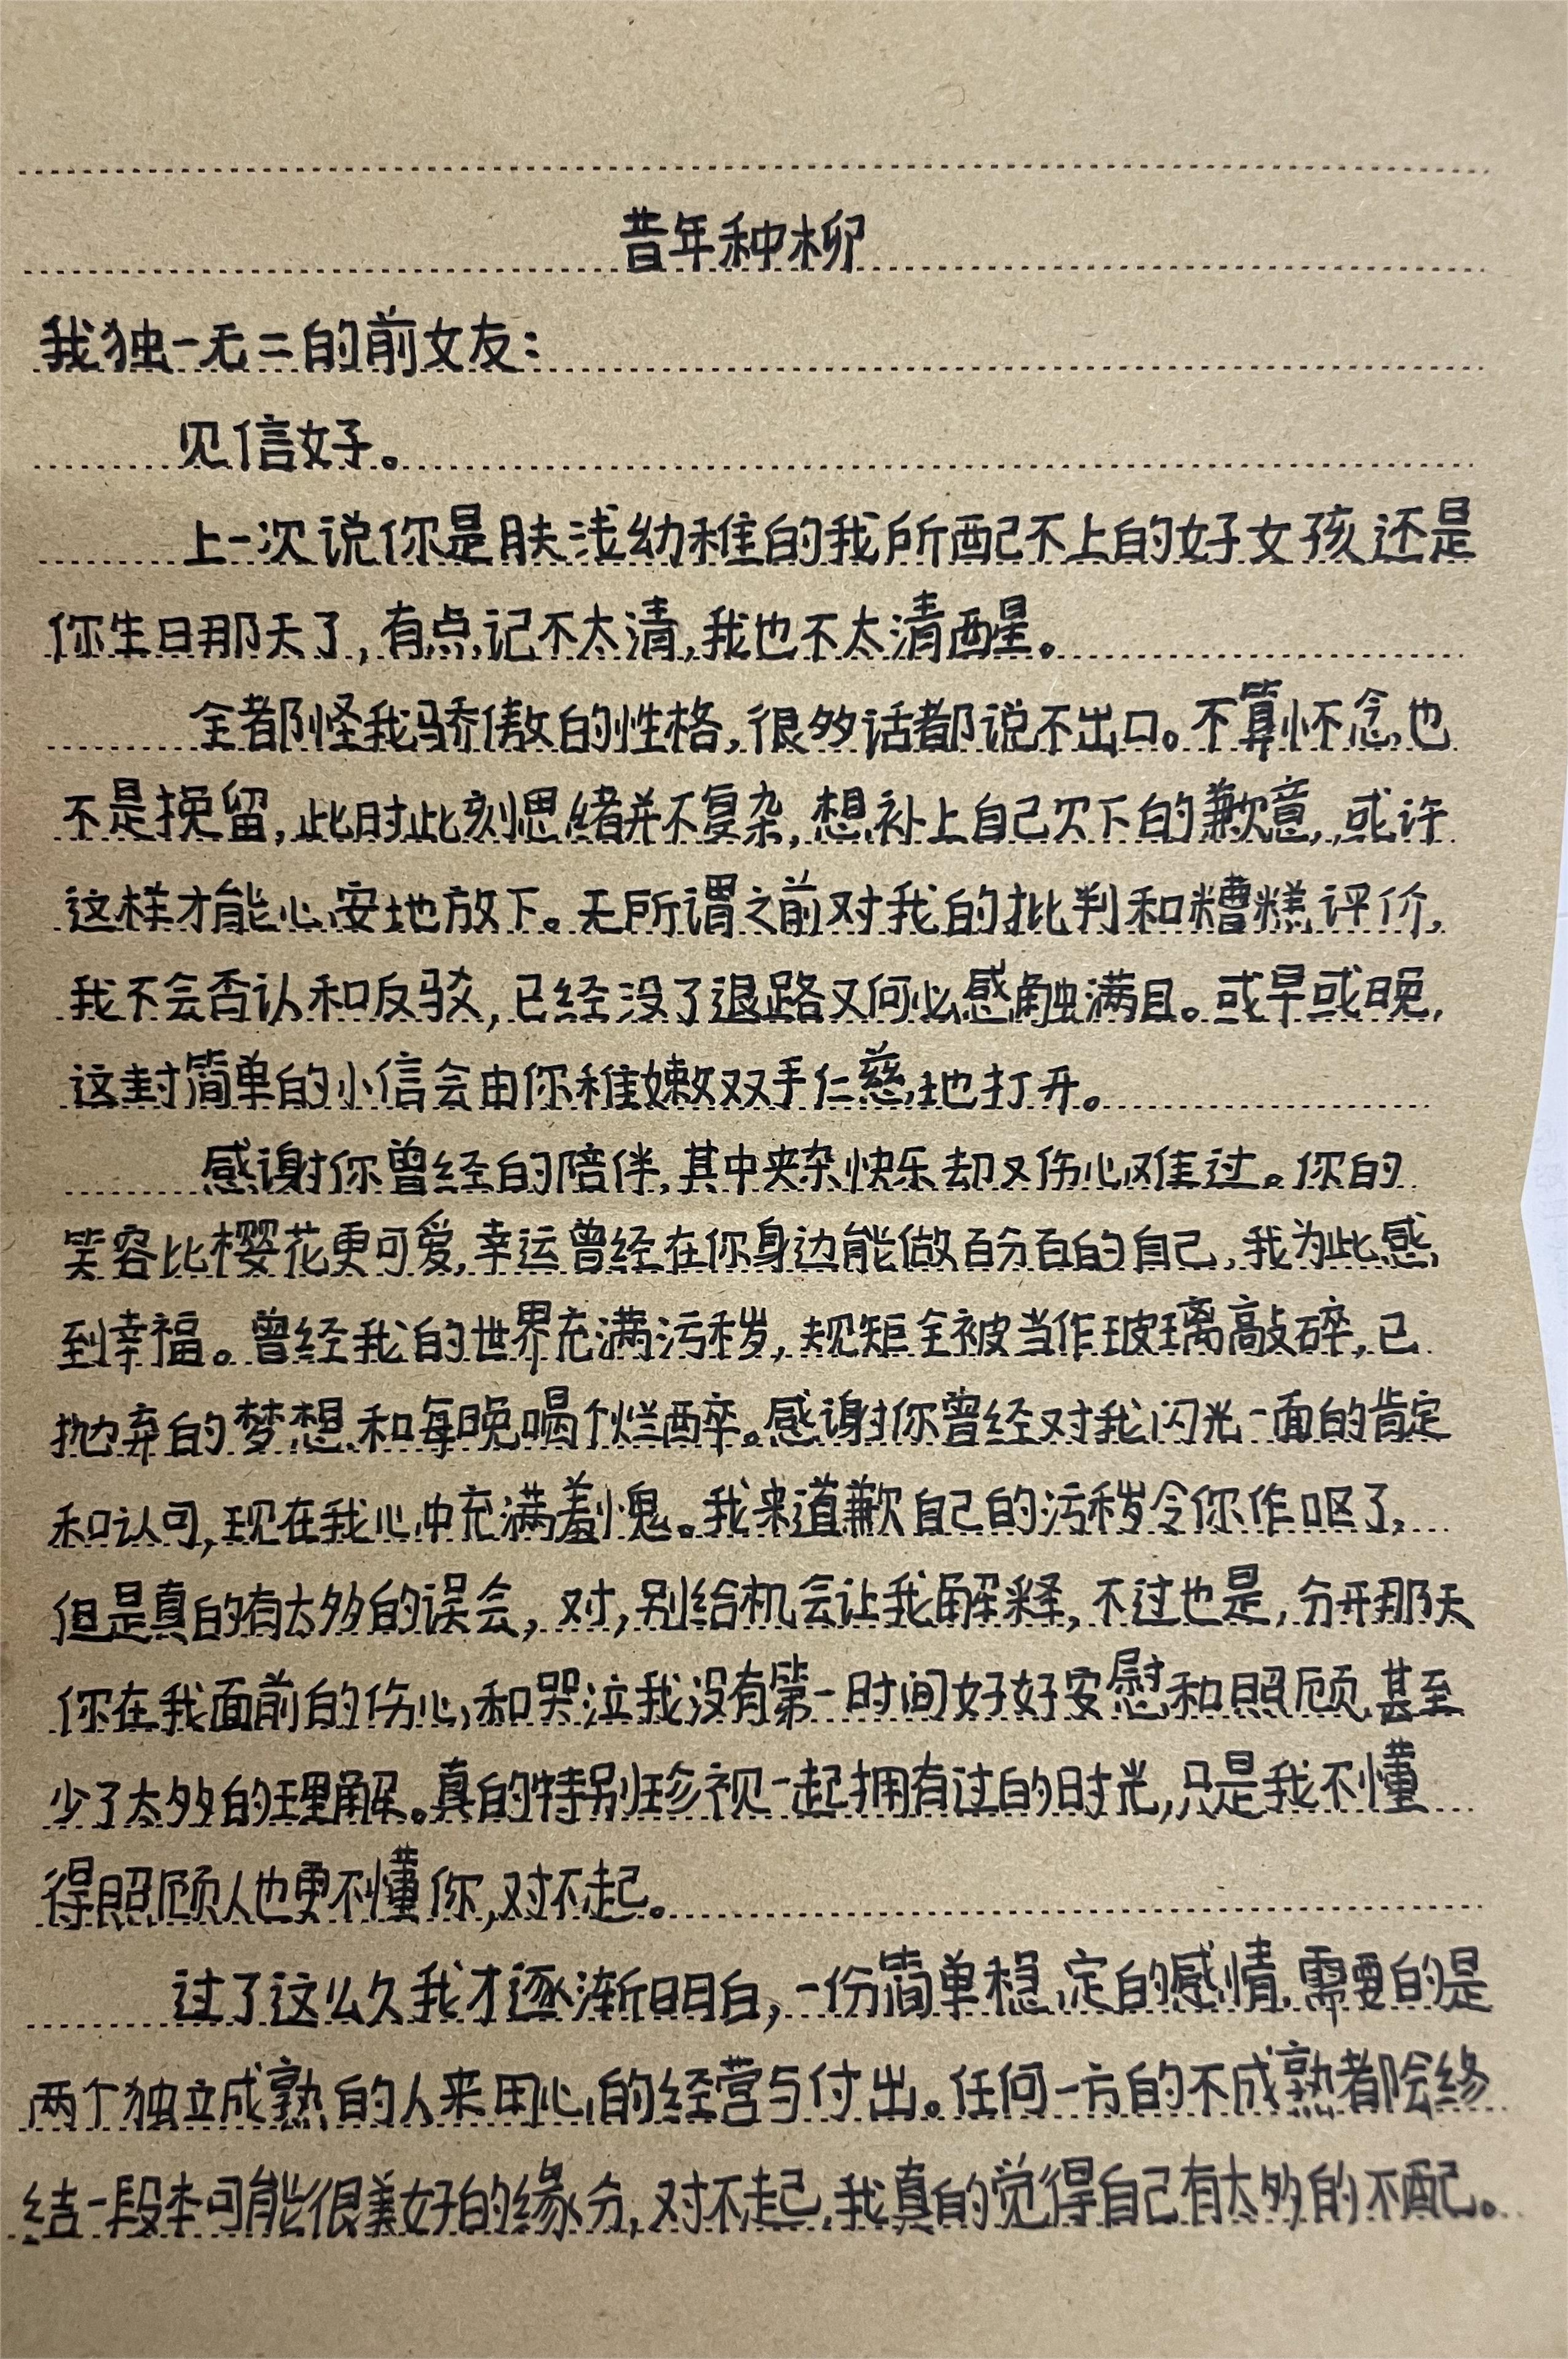 昔年种柳
我独一无二的前女友：
见信好。
上一次说你是肤浅幼稚的我所配不上的好女孩还是
你生日那天了，有点记不太清，我也不太清醒。
全都怪我骄傲的性格，很多话都说不出口。不算怀念也
不是挽留，此时此刻思绪并不复杂，想补上自己欠下的歉意，或许
这样才能心安地放下。无所谓之前对我的批判和糟糕评价，
我不会否认和反驳，已经没了退路又何必感触满目。或早或晚，
这封简单的小信会由你稚嫩双手仁慈地打开。
感谢你曾经的陪伴，其中夹杂快乐却又伤心难过。你的
笑容比樱花更可爱，幸运曾经在你身边能做百分百的自己，我为此感
到幸福。曾经我的世界充满污秽，规矩全被当作玻璃敲碎，已
抛弃的梦想和每晚喝个烂醉。感谢你曾经对我闪光一面的肯定
和认可，现在我心中充满羞愧。我来道歉自己的污秽令你作呕了，
但是真的有太多的误会，对，别给机会让我解释，不过也是，分开那天
你在我面前的伤心和哭泣我没有第一时间好好安慰和照顾，甚至
少了太多的理解。真的特别珍视一起拥有过的时光，只是我不懂
得照顾人也更不懂你，对不起。
过了这么久我才逐渐明白，一份简单稳定的感情，需要的是
两个独立成熟的人来用心的经营与付出。任何一方的不成熟都会终
结一段本可能很美好的缘分，对不起，我真的觉得自己有太多的不配。